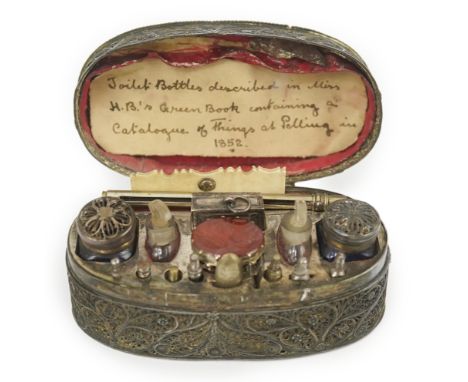 Toilet Bottles described in Miss
H.B.'s Green Book containing a
Catalogue of Things at Pelling in
1852.